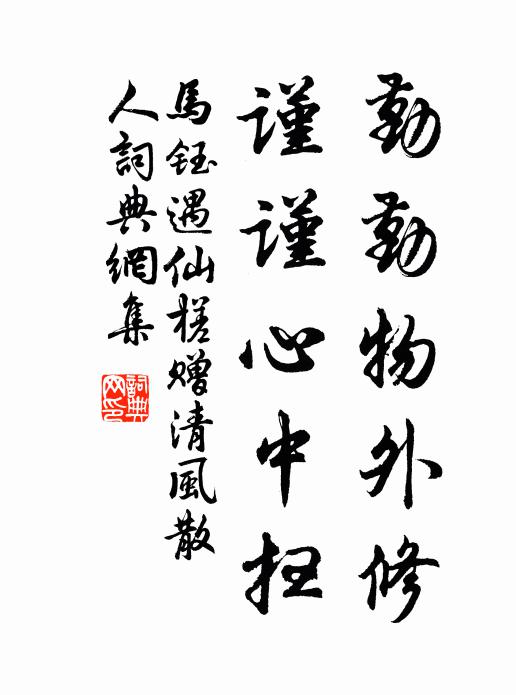 勤勤物外修
謹謹心中扭
馬鈺遇仙槎贈清風散
人詞典網集
詞典
网印